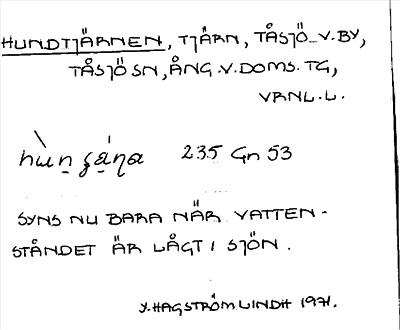 HUNDTJÄRNEN, TJÄRN, TÅSJÖ V. BY,
TÅSJÖ SN, ÅNG. V. DOMS. TG,
VRNL. L.
235 Gn 53
SYNS NU BARA NÄR VATTEN-
STÅNDET ÄR LÅGT I SJÖN.
Y. HAGSTRÖM LINDH 1971.